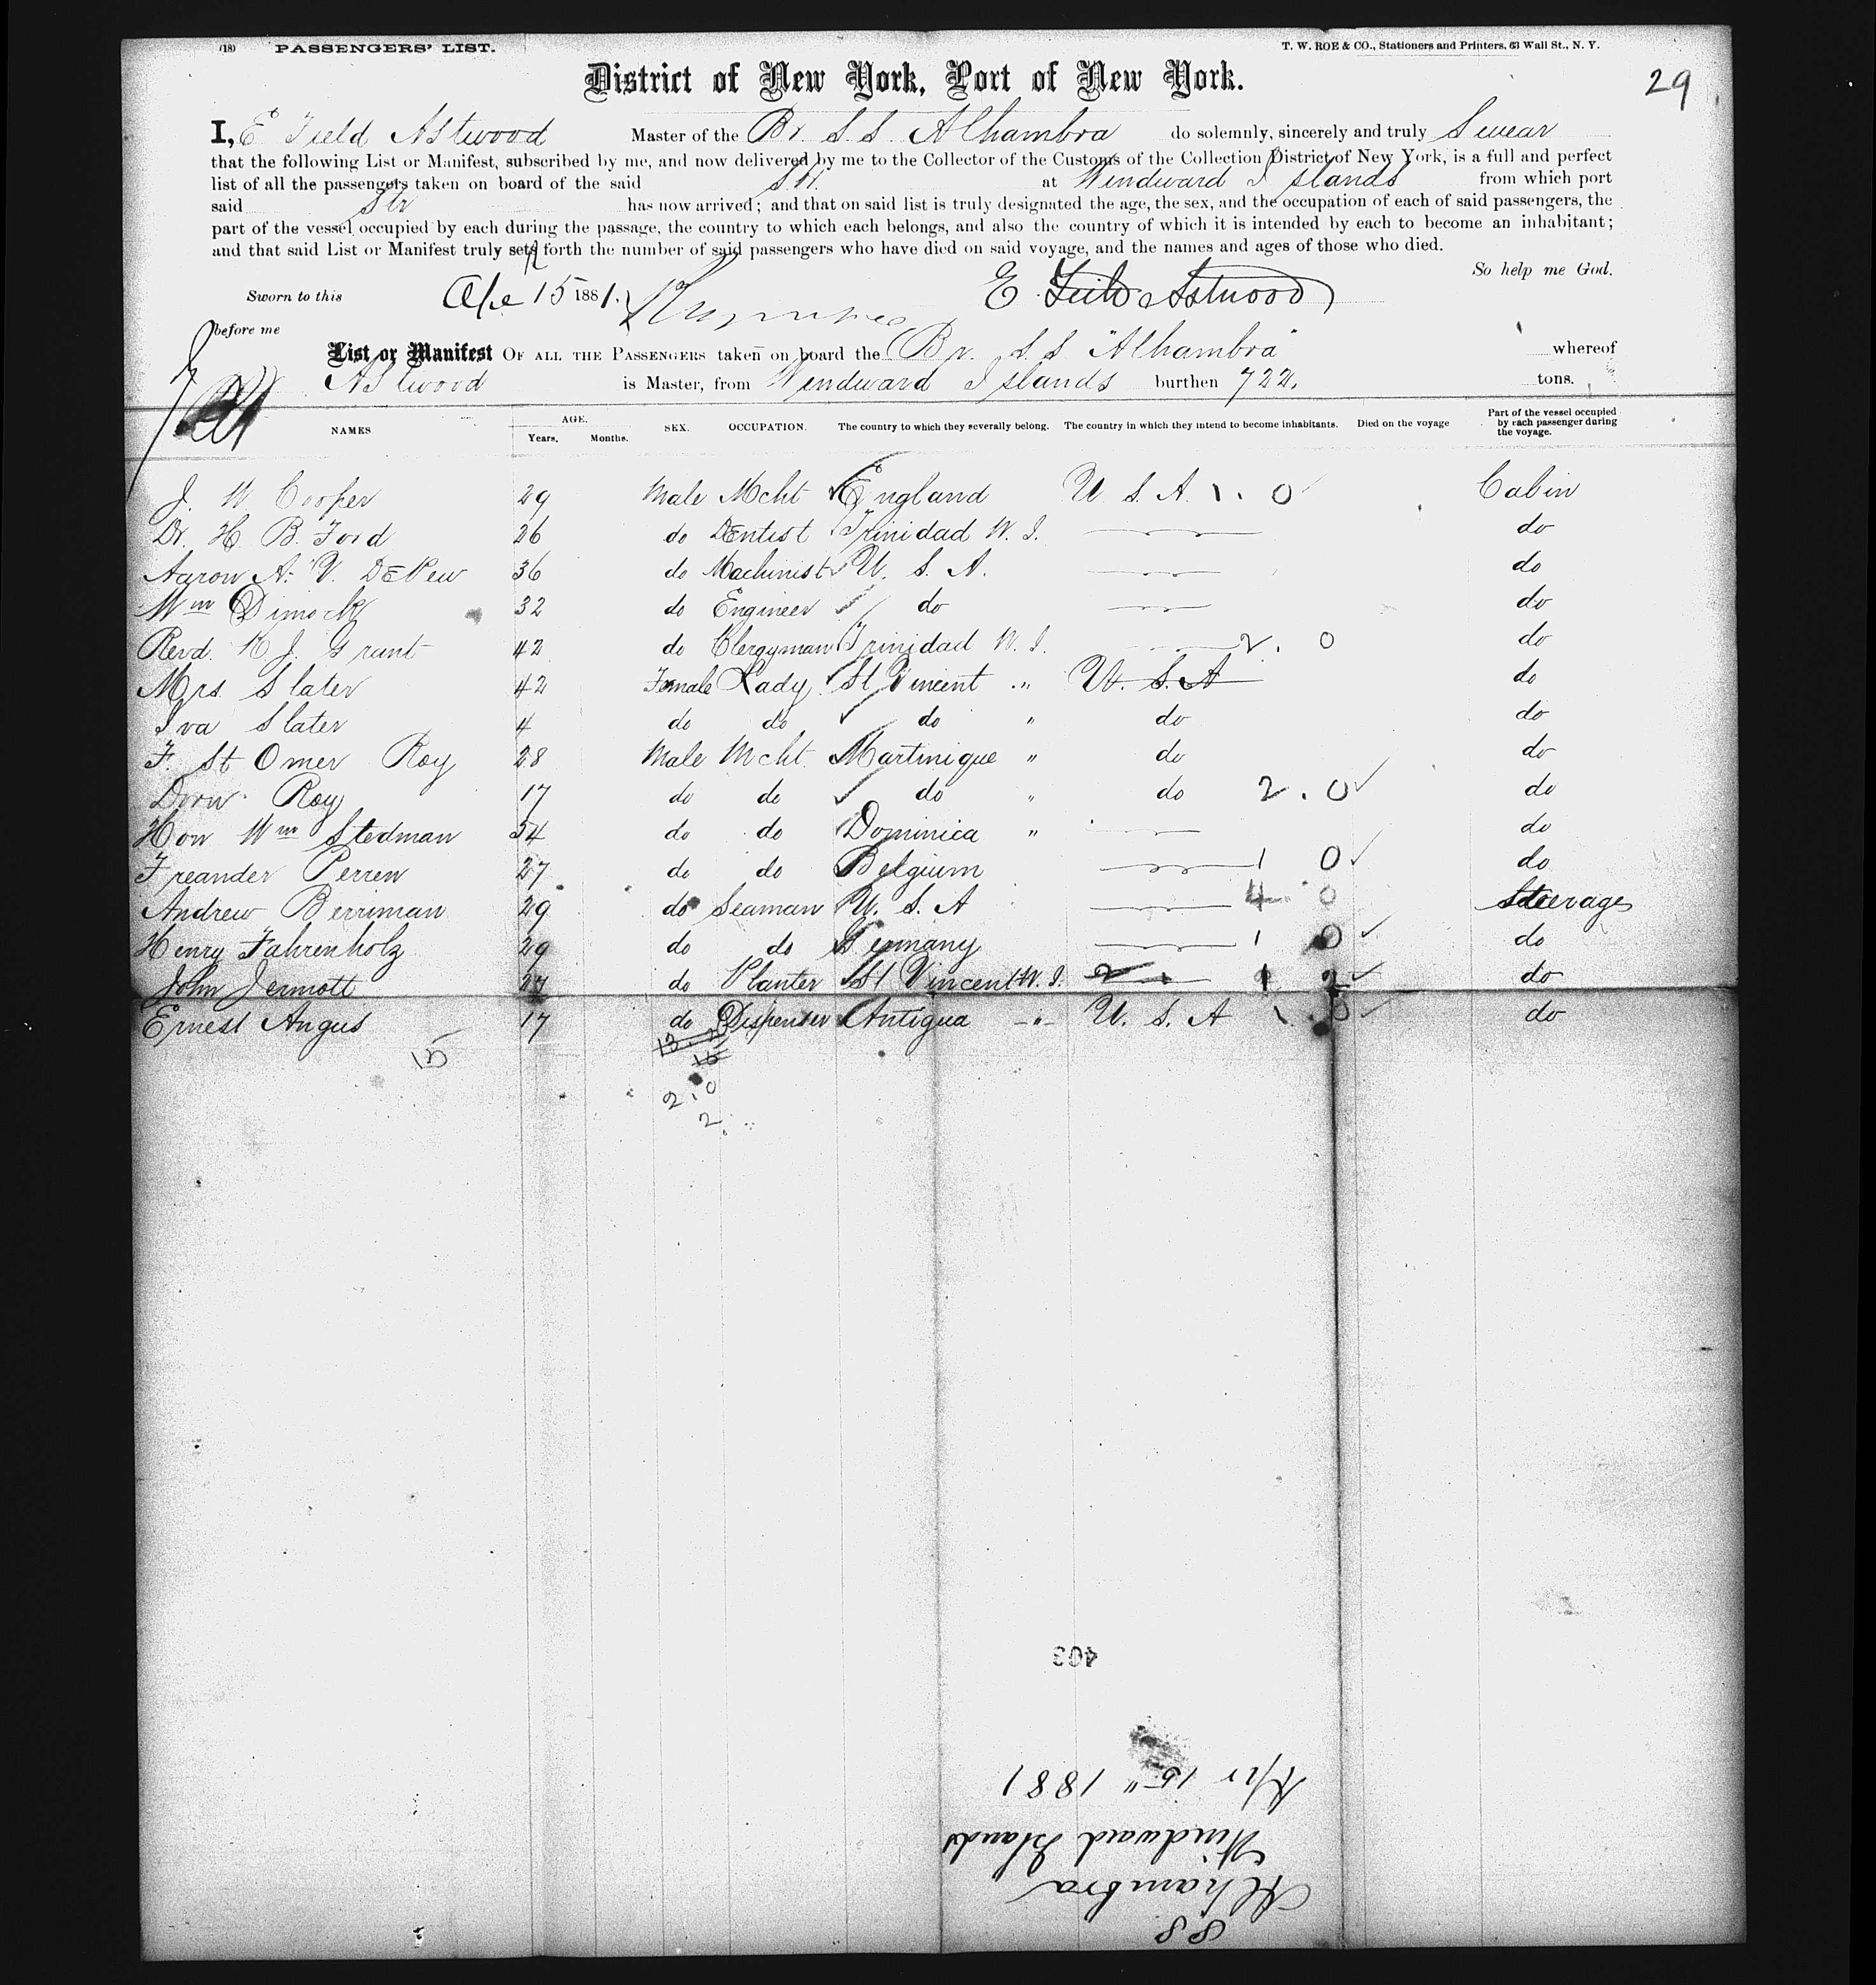 (18) PASSENGERS' LIST. T. W. ROE & CO., Stationers and Printers, 63 Wall St., N. Y.
29
District of New York, Port of New York.
I, E Field Astwood Master of the Br. S.S. Alhambra do solemnly, sincerely and truly Swear
that the following List or Manifest, subscribed by me, and now delivered by me to the Collector of the Customs of the Collection District of New York, is a full and perfect
list of all the passengers taken on board of the said at Windward Islands from which port
said Str has now arrived; and that on said list is truly designated the age, the sex, and the occupation of each of said passengers, the
part of the vessel occupied by each during the passage, the country to which each belongs, and also the country of which it is intended by each to become an inhabitant;
and that said List or Manifest truly sets forth the number of said passengers who have died on said voyage, and the names and ages of those who died.
So help me God.
Sworn to this 15 1881. E Astwood
before me
List or Manifest OF ALL THE PASSENGERS taken on board the Br. S.S. "Alhambra" whereof
Astwood is Master, from Windward Islands burthen 722. tons.
NAMES AGE. Years. Months. SEX. OCCUPATION. The country to which they severally belong. The country in which they intend to become inhabitants. Died on the voyage Part of the vessel occupied by each passenger during the voyage.
J. W Cooper 29 Male Mcht England U. S. A. 1. 0 Cabin
Dr. H. B. Ford 26 do Dentist Trinidad W. I. do
Aaron A. V. DePew 36 do Machinist U. S. A. do
Wm Dimock 32 do Engineer do do
Revd. K J. Grant 42 do Clergyman Trinidad W. I. 2. 0 do
Mrs. Slater 42 Female Lady St Vincent " U. S. A do
Iva Slater 4 do do do " do do
F. St Omer Roy 28 Male Mcht. Martinique " do do
Roy 17 do do do " do 2. 0 do
Hon Wm Stedman 54 do do Dominica " do
Perren 27 do do Belgium 1 0 do
Andrew Berriman 29 do Seaman U. S. A 4 0 Steerage
Henry Fahrenholz 29 do do Germany 1 0 do
John Jermott 27 do Planter St Vincent W. I. 2 do
Ernest Angus 17 do Dispenser Antigua " U. S. A 1. 0 do
15
13.
15
2.0
2
403
Apr 15" 1881
Windward Islands
Alhambra
SS